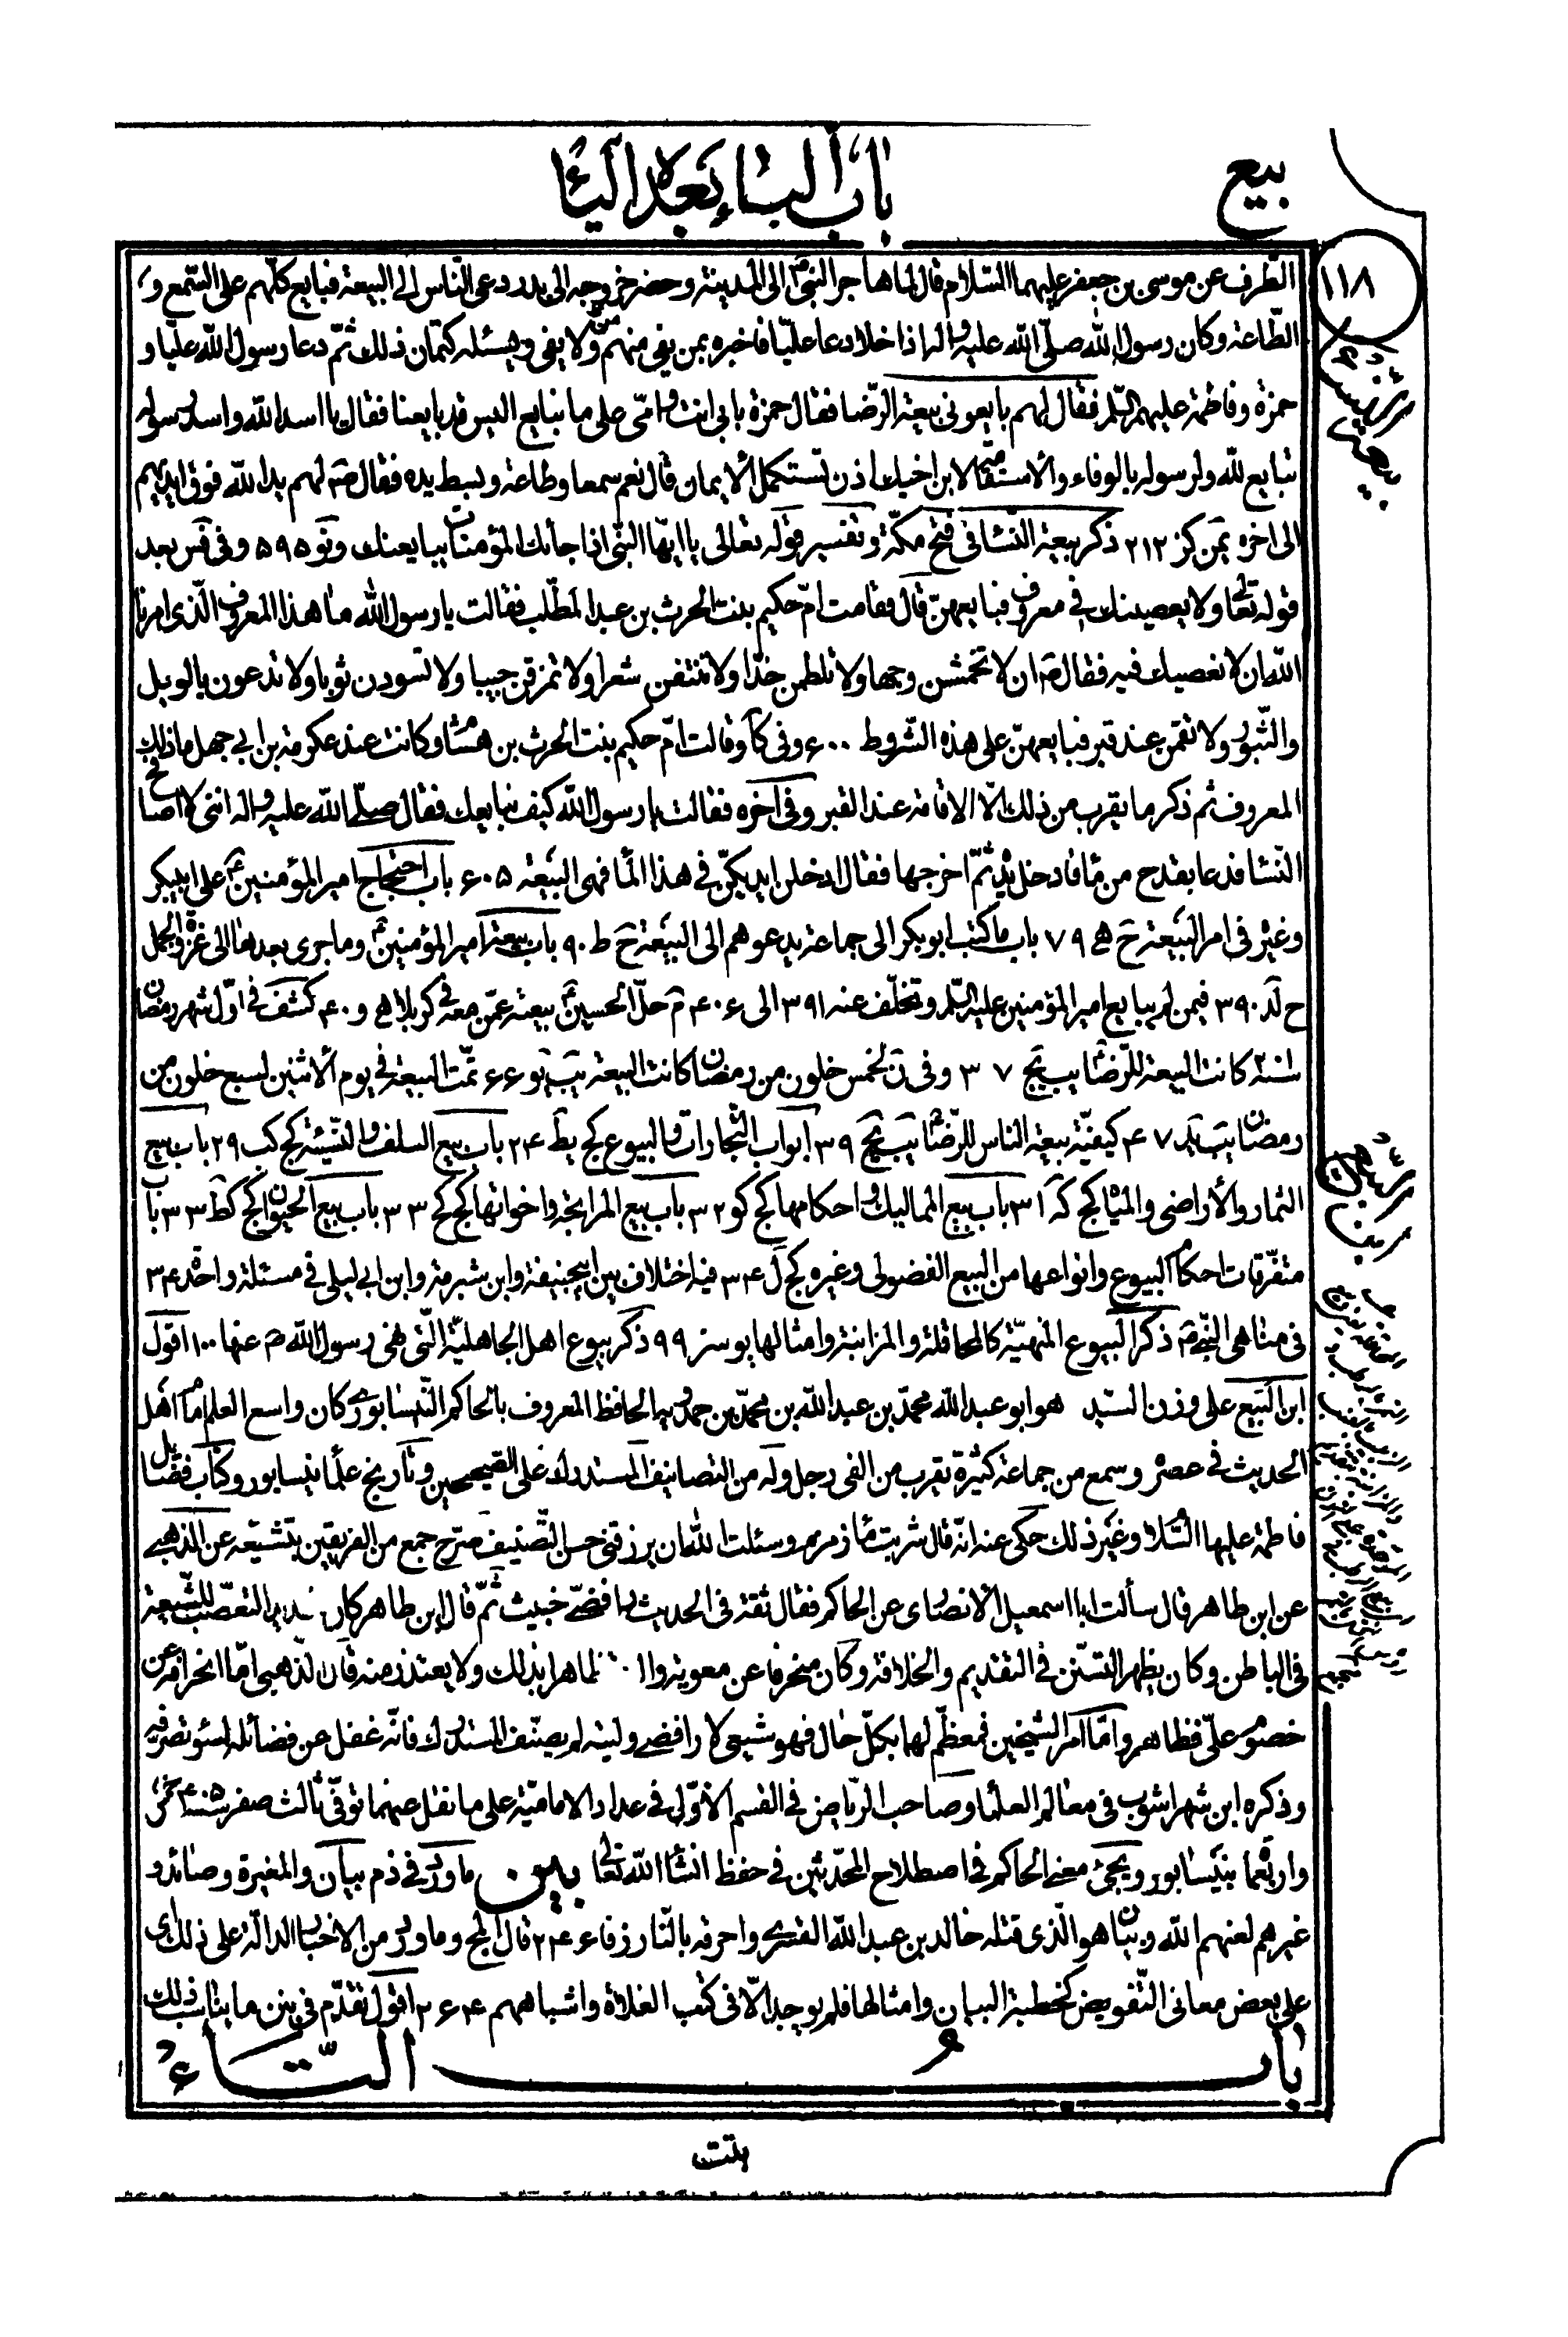 بيع
باب الباء بعده الياء
١١٨
الطّرف عن موسى بن جعفر عليهما السّلام قال لمّا هاجر النبىّ ص الى المدينة وحضر خروجه الى بدر دعى النّاس الى البيعة فبايع كلّهم على السّمع و
الطّاعة وكان رسول الله صلّى الله عليه واله اذا خلا دعا عليّا فاخبره بمن يفى منهم ومن لا يفى ويسئله كتمان ذلك ثمّ دعا رسول الله عليّا و
حمزة وفاطمة عليهم السّلم فقال لهم بايعونى بيعة الرّضا فقال حمزة بابى انت وامّى على ما نبايع اليس قد بايعنا فقال يا اسد الله واسد رسوله
تبايع لله ولرسوله بالوفاء والاستقامة لابن اخيك اذن تستكمل الايمان قال نعم سمعا وطاعة وبسط يده فقال ص لهم يد الله فوق ايديهم
الى اخره يمن كز ٢١٢ ذكر بيعة النّساء فى فتح مكّة وتفسير قوله تعالى يا ايّها النّبى اذا جائك المؤمنات يبايعنك ونو ٥٩٥ وفى فس بعد
قوله تعالى ولا يعصينك فى معروف فبايعهنّ قال فقامت امّ حكيم بنت الحرث بن عبد المطّلب فقالت يا رسول الله ما هذا المعروف الّذى امرنا
الله ان لا نعصيك فيه فقال ص ان لا تخمشن وجها ولا تلطمن خدّا ولا تنتفن شعرا ولا تمزقن جيبا ولا تسودن ثوبا ولا تدعون بالويل
والثّبور ولا تقمن عند قبر فبايعهنّ على هذه الشّروط ٦٠٠ وفى كا وقالت امّ حكيم بنت الحرث بن هشام وكانت عند عكرمة بن ابى جهل ما ذلك
المعروف ثم ذكر ما يقرب من ذلك الّا الاقامة عند القبر وفى اخره فقالت يا رسول الله كيف نبايعك فقال صلّى الله عليه واله اننى لا اصافح
النّساء فدعا بقدح من ماء فادخل يده ثمّ اخرجها فقال ادخلن ايديكنّ فى هذا الماء فهى البيعة ٦٠٥ باب احتجاج امير المؤمنين ع على ابيبكر
وغيره فى امر البيعة ح هے ٧٩ باب ما كتب ابو بكر الى جماعة يدعوهم الى البيعة ح ط ٩٠ باب بيعة امير المؤمنين ع وما جرى بعدها الى غزوة الجمل
ح لد ٣٩٠ فيمن لم يبايع امير المؤمنين عليه السّلم وتخلّف عنه ٣٩١ الى ٤٠٦ م حلّ الحسين ع بيعته عمّن معه فى كربلا هے و ٤٠ كشف فى اوّل شهر رمضان
كانت البيعة للرّضا ع يب يج ٣٧ وفى ن لخمس خلون من رمضان كانت البيعة يب يو ٦٦ تمّت البيعة فى يوم الاثنين لسبع خلون من
رمضان يب يد ٤٧ كيفيّة بيعة الناس للرّضا ع يب يج ٣٩ ابواب التّجارات والبيوع كج يط ٢٤ باب بيع السلف والنّسيئة كج كب ٢٩ باب بيع
الثمار والأراضى والمياه كج كه ٣١ باب بيع المماليك واحكامها كج كو ٣٢ باب بيع المرابحة واخواتها كج كح ٣٣ باب بيع الحيوان كج كط ٣٣ باب
متفرّقات احكام البيوع وانواعها من البيع الفضولى وغيره كج ل ٣٤ فيه اختلاف بين ابيحنيفة وابن شبرمة وابن ابى ليلى فى مسئلة واحدة ٣٤
فى مناهى النّبى ص ذكر البيوع المنهيّة كالمحاقلة والمزابنة وامثالها يو سز ٩٩ ذكر بيوع اهل الجاهليّة الّتى نهى رسول الله ص عنها ١٠٠ اقول
ابن البَيّع على وزن السّيد هو ابو عبد الله محمّد بن عبد الله بن محمّد بن حمدويه الحافظ المعروف بالحاكم النّيسابورى كان واسع العلم امام اهل
الحديث فى عصره وسمع من جماعة كثيرة يقرب من الفى رجل وله من التصانيف المستدرك على الصحيحين وتاريخ علماء نيسابور وكتاب فضائل
فاطمة عليها السّلام وغير ذلك حكى عنه انّه قال شربت ماء زمزم وسئلت الله ان يرزقنى حسن التّصنيف صرّح جمع من الفريقين بتشيّعه عن الذهبى
عن ابن طاهر قال سألت ابا اسمعيل الانصارى عن الحاكم فقال ثقة فى الحديث رافضىّ خبيث ثمّ قال ابن طاهر كان شديد التعصّب للشّيعة
فى الباطن وكان يظهر التسنّن فى التقديم والخلافة وكان منحرفا عن معوية واله متظاهرا بذلك ولا يعتذر منه قال الذهبى امّا انحرافه عن
خصوم علىّ فظاهر وامّا امر الشيخين فمعظّم لهما بكلّ حال فهو شيعى لا رافضى وليته لم يصنّف المستدرك فانّه غفل عن فضائله لسوء تصرفه
وذكره ابن شهراشوب فى معالم العلماء وصاحب الرّياض فى القسم الاوّل فى عداد الاماميّة على ما نقل عنهما توفّى ثالث صفر سنة ٤٠٥ خمس
واربعمائة بنيسابور ويجئ معنى الحاكم فى اصطلاح المحدّثين فى حفظ انشاء الله تعالى بين ما ورد فى ذم بيان والمغيرة وصائد و
غيرهم لعنهم الله وبيان هو الّذى قتله خالد بن عبد الله القسرى واحرقه بالنّار ز فا ٢٤٦ قال المج وما ورد من الاخبار الدالّة على ذلك اى
على بعض معانى التّفويض كخطبة البيان وامثالها فلم يوجد الّا فى كتب الغلاة واشباههم ٢٦٤ اقول تقدّم فى بنن ما يناسب ذلك
باب التّاء